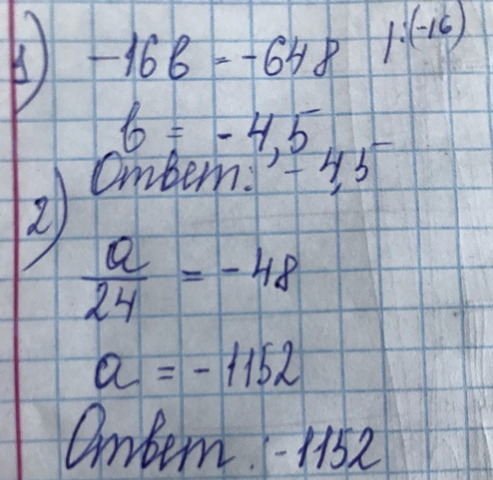 1) -16в = -648 |:(-16)
в = -4,5
Ответ: -4,5
2)
а/24 = -48
а = -1152
Ответ: -1152